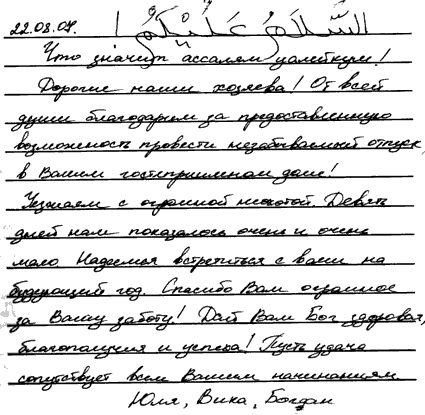 22.08.07. اَلسَّلَامُ عَلَيْكُمْ!
Что значит ассалям уалейкум!
Дорогие наши хозяева! От всей
души благодарим за предоставленную
возможность провести незабываемый отпуск
в Вашем гостеприимном доме!
Уезжаем с огромной неохотой. Девять
дней нам показалось очень и очень
мало. Надеемся встретиться с вами на
будующий год. Спасибо Вам огромное
за Вашу заботу! Дай Вам Бог здоровья,
благополучия и успеха! Пусть удача
сопутствует всем Вашим начинаниям.
Юля, Вика, Богдан